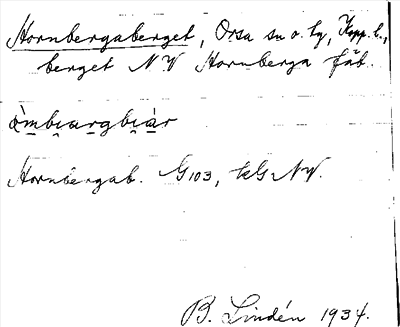 Hornbergaberget, Orsa sn o. tg, Kopp. l.,
berget N.V Hornberga fäb.
Hornbergab. G103, kG NV.
B. Lindén 1934.